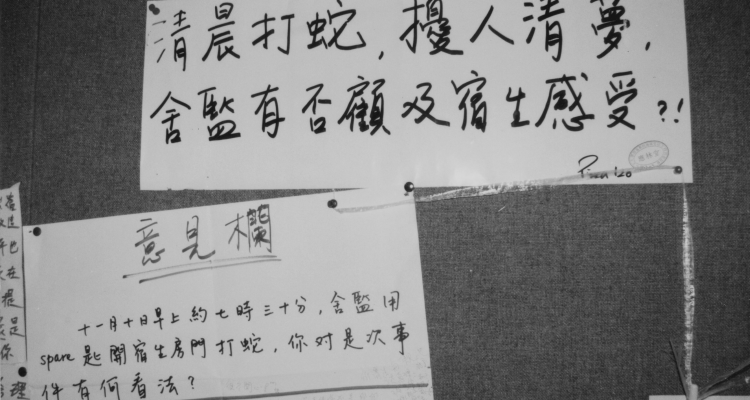 清晨打蛇,擾人清夢,
舍監有否顧及宿生感受?!
意見欄
十一月十日早上約七時三十分,舍監用
spare 匙開宿生房門打蛇,你対是次事
件有何看法?